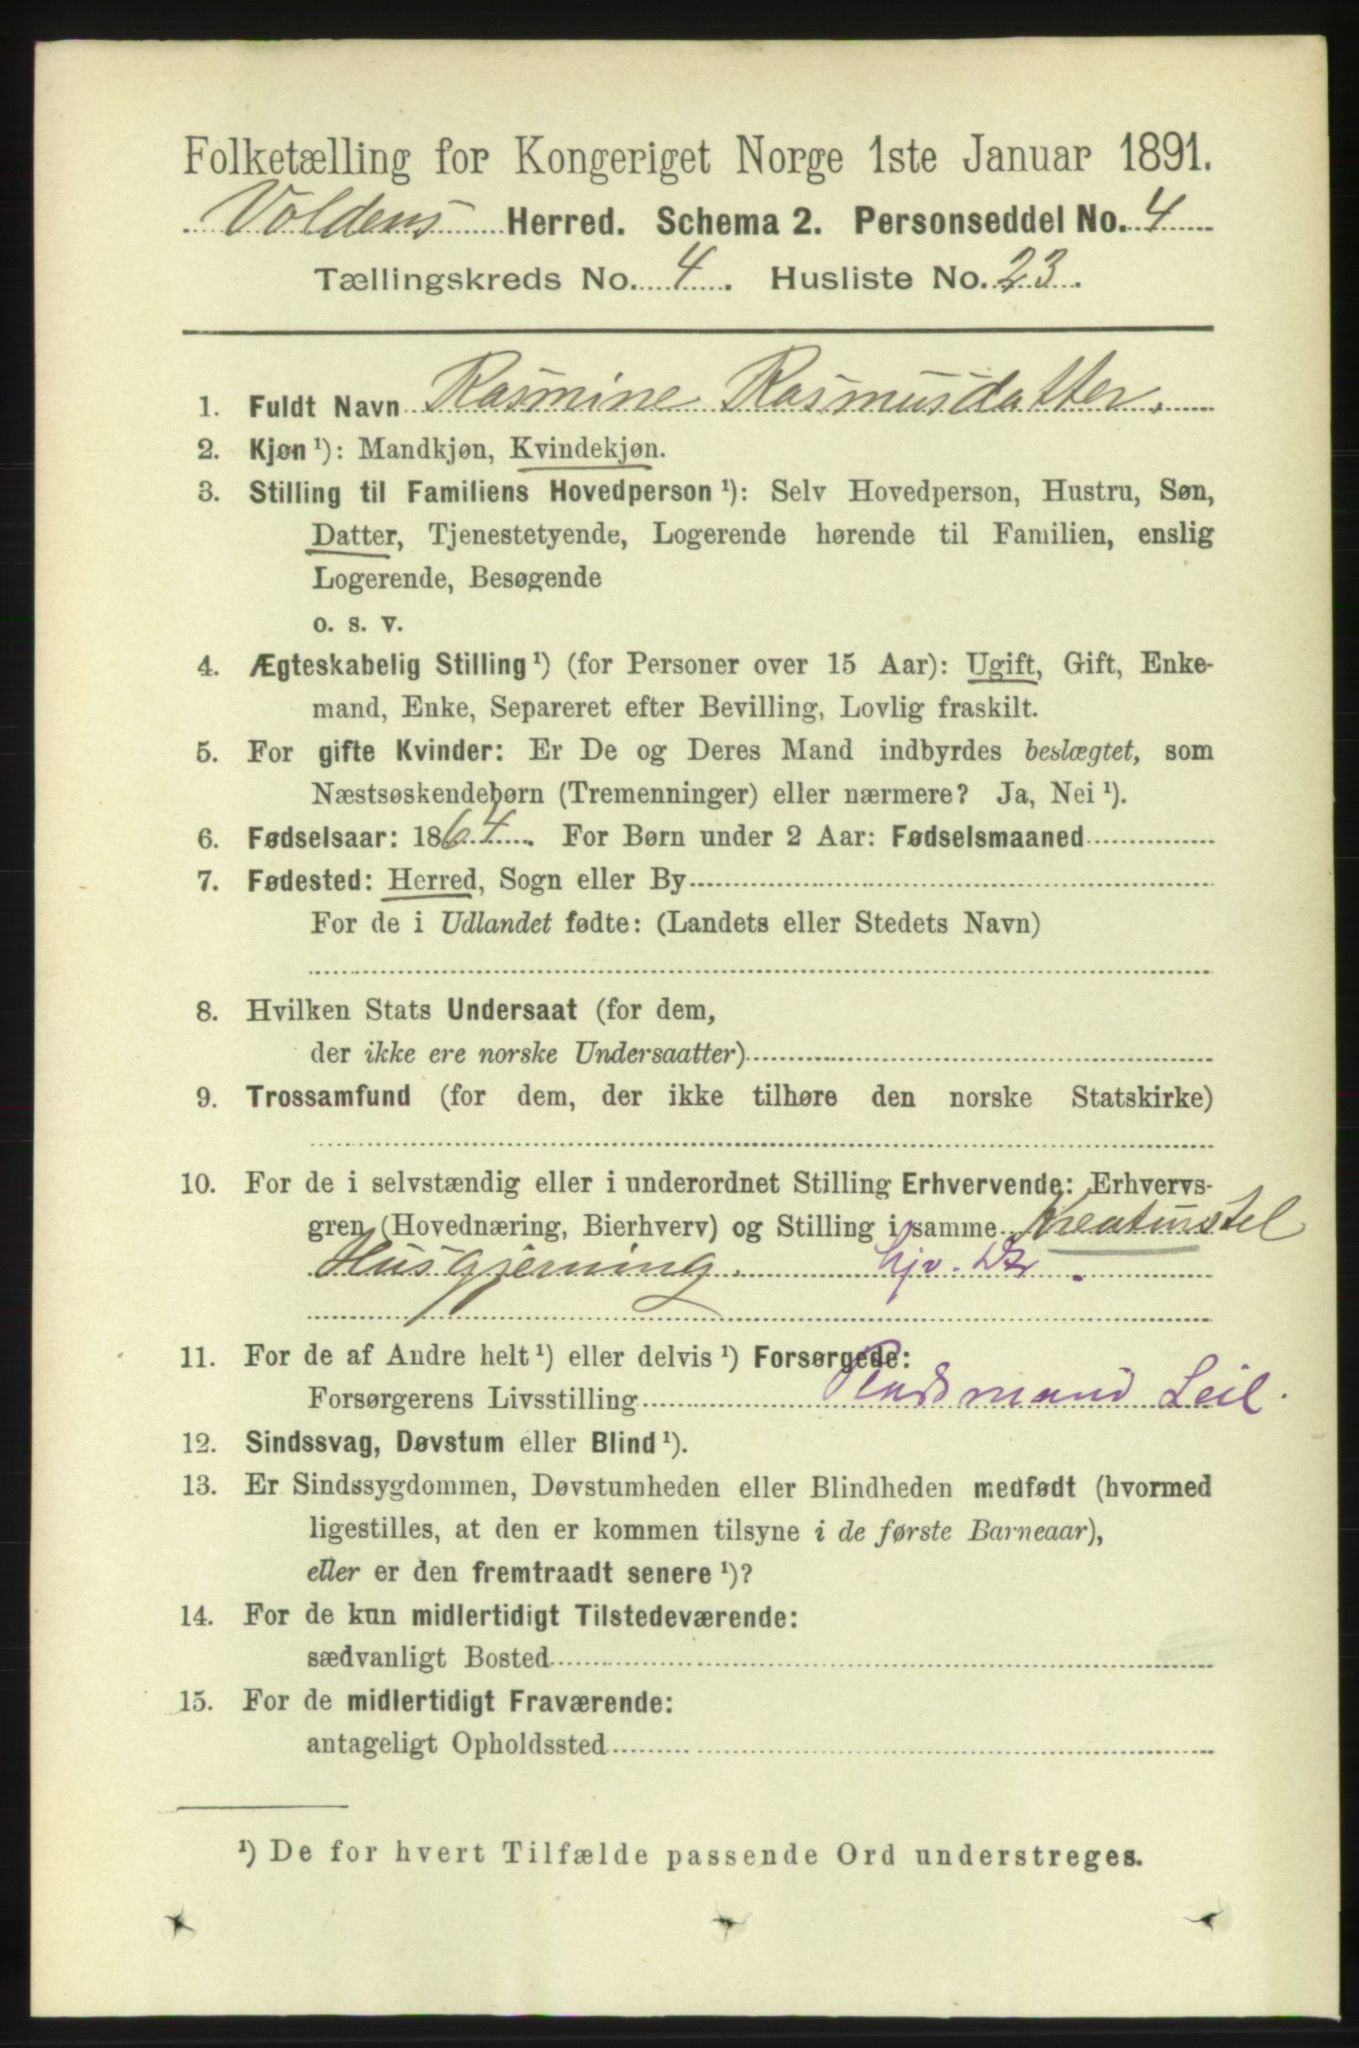 Folketælling for Kongeriget Norge 1ste Januar 1891.
Voldens Herred. Schema 2. Personseddel No. 4
Tællingskreds No. 4. Husliste No. 23.
1. Fuldt Navn Rasmine Rasmusdatter.
2. Kjøn ¹): Mandkjøn, Kvindekjøn.
3. Stilling til Familiens Hovedperson ¹): Selv Hovedperson, Hustru, Søn,
Datter, Tjenestetyende, Logerende hørende til Familien, enslig
Logerende, Besøgende
o. s. v.
4. Ægteskabelig Stilling ¹) (for Personer over 15 Aar): Ugift, Gift, Enke-
mand, Enke, Separeret efter Bevilling, Lovlig fraskilt.
5. For gifte Kvinder: Er De og Deres Mand indbyrdes beslægtet, som
Næstsøskendebørn (Tremenninger) eller nærmere? Ja, Nei ¹).
6. Fødselsaar: 1864. For Børn under 2 Aar: Fødselsmaaned
7. Fødested: Herred, Sogn eller By
For de i Udlandet fødte: (Landets eller Stedets Navn)
8. Hvilken Stats Undersaat (for dem,
der ikke ere norske Undersaatter)
9. Trossamfund (for dem, der ikke tilhøre den norske Statskirke)
10. For de i selvstændig eller i underordnet Stilling Erhvervende: Erhvervs-
gren (Hovednæring, Bierhverv) og Stilling i samme Kreaturstel
Husgjerning. hjv. Dtr.
11. For de af Andre helt ¹) eller delvis ¹) Forsørgede:
Forsørgerens Livsstilling Pladsmand Leil.
12. Sindssvag, Døvstum eller Blind ¹).
13. Er Sindssygdommen, Døvstumheden eller Blindheden medfødt (hvormed
ligestilles, at den er kommen tilsyne i de første Barneaar),
eller er den fremtraadt senere ¹)?
14. For de kun midlertidigt Tilstedeværende:
sædvanligt Bosted
15. For de midlertidigt Fraværende:
antageligt Opholdssted
¹) De for hvert Tilfælde passende Ord understreges.